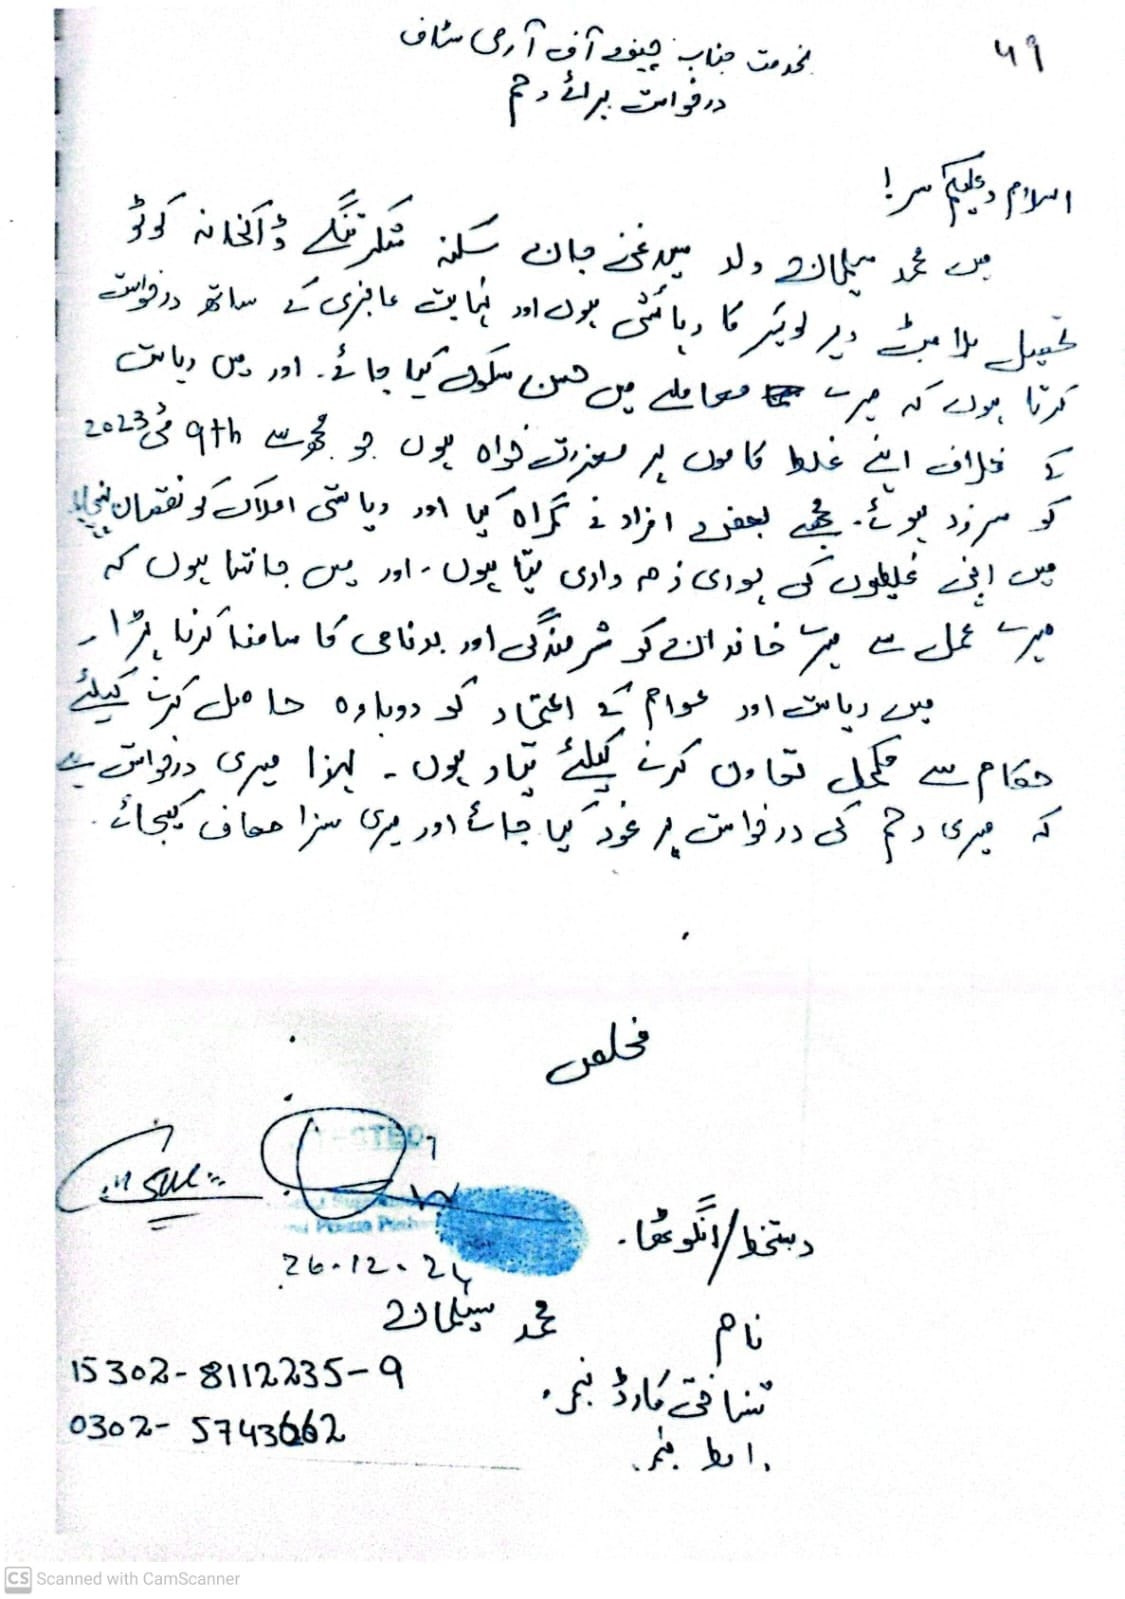 49
بخدمت جناب چیف آف آرمی سٹاف
درخواست برائے رحم
اسلام و علیکم سر!
میں محمد سیلمان ولد سید غنی جان سکنہ ڈاکخانہ کوٹو
تحصیل بلامبٹ دیر لوئیر کا رہائشی ہوں اور نہایت عاجزی کے ساتھ درخواست
کرتا ہوں کہ میرے معاملے میں حسن سکوک کیا جائے۔ اور میں ریاست
کے خلاف اپنے غلط کاموں پر معذرت خواہ ہوں جو مجھ سے 9th مئی 2023
کو سرزد ہوئے۔ مجھے بعض افراد نے گمراہ کیا اور ریاستی املاک کو نقصان پہنچایا
میں اپنی غلیطوں کی پوری ذمہ داری لیتا ہوں۔ اور میں جانتا ہوں کہ
میرے عمل سے میرے خاندان کو شرمندگی اور بدنامی کا سامنا کرنا پڑا۔
میں ریاست اور عوام کے اعتماد کو دوبارہ حاصل کرنے کیلئے
حکام سے مکمل تعاون کرنے کیلئے تیار ہوں۔ لہزا میری درخواست ہے
کہ میری رحم کی درخواست پر غور کیا جائے اور میری سزا معاف کیجائے۔
مخلص
دستخط/انگوٹھا۔
26.12.24
نام محمد سیلمان
شناختی کارڈ نمبر 15302-8112235-9
رابطہ نمبر 0302-5743662
CS Scanned with CamScanner